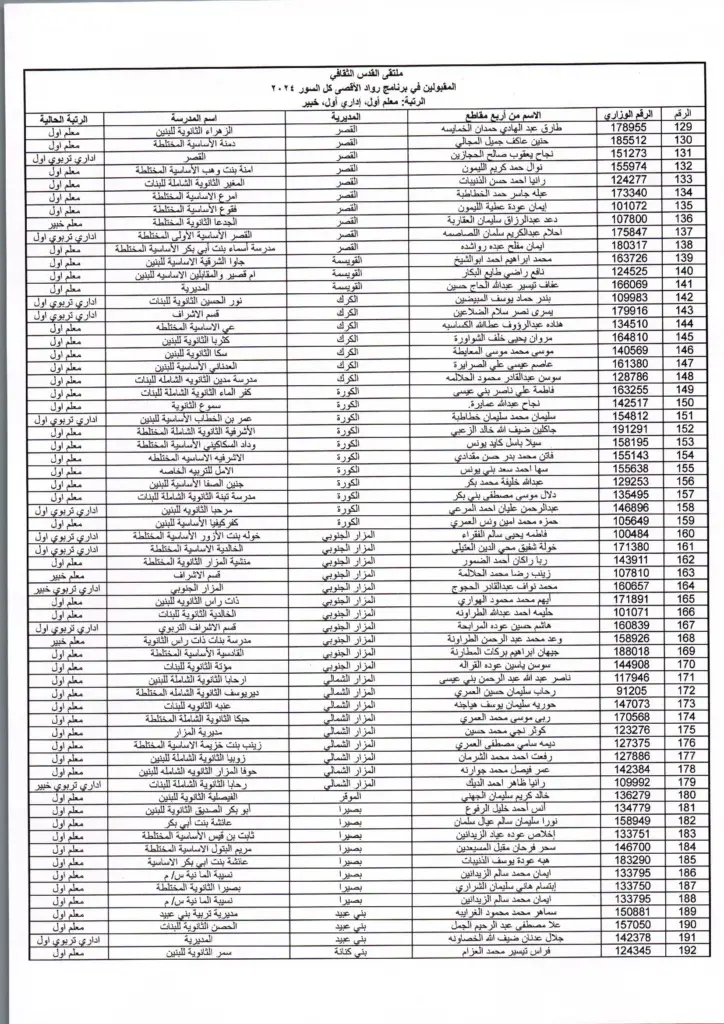 ملتقى القدس الثقافي
المقبولين في برنامج رواد الأقصى كل السور ٢٠٢٤
الرتبة: معلم أول، إداري أول، خبير
الرقم الرقم الوزاري الاسم من أربع مقاطع المديرية اسم المدرسة الرتبة الحالية
129 178955 طارق عبد الهادي حمدان الخمايسه القصر الزهراء الثانوية للبنين معلم اول
130 185512 حنين عاكف جميل المجالي القصر دمنة الأساسية المختلطة معلم اول
131 151273 نجاح يعقوب صالح الحجازين القصر القصر اداري تربوي اول
132 155974 نوال حمد كريم الليمون القصر امنة بنت وهب الأساسية المختلطة معلم اول
133 124277 رانيا احمد حسن الذنيبات القصر المغير الثانوية الشاملة للبنات معلم اول
134 173340 عبله جاسر حمد الخطاطبة القصر امرع الاساسية المختلطة معلم اول
135 101072 ايمان عودة عطية الليمون القصر فقوع الأساسية المختلطة معلم اول
136 107800 دعد عبدالرزاق سليمان العقاربة القصر الجدعا الثانوية المختلطة معلم خبير
137 175847 احلام عبدالكريم سلمان اللصاصمه القصر القصر الأساسية الأولى المختلطة اداري تربوي اول
138 180317 ايمان مفلح عبده رواشده القصر مدرسة أسماء بنت أبي بكر الأساسية المختلطة معلم أول
139 163726 محمد ابراهيم احمد ابوالشيخ القويسمة جاوا الشرقية الاساسية للبنين معلم اول
140 124525 نافع راضي طايع البكار القويسمة ام قصير والمقابلين الاساسيه للبنين معلم اول
141 166069 عفاف تيسير عبدالله الحاج حسين القويسمة المديرية معلم اول
142 109983 بندر حماد يوسف المبيضين الكرك نور الحسين الثانوية للبنات اداري تربوي اول
143 179916 يسرى نصر سلام الضلاعين الكرك قسم الاشراف اداري تربوي اول
144 134510 هناده عبدالرؤوف عطاالله الكساسبه الكرك عي الاساسية المختلطه معلم اول
145 164810 مروان يحيى خلف الشواورة الكرك كثربا الثانوية للبنين معلم اول
146 140569 موسى محمد موسى المعايطة الكرك سكا الثانوية للبنين معلم اول
147 161380 عاصم عيسى علي الصرايرة الكرك العدناني الأساسية للبنين معلم اول
148 128786 سوسن عبدالقادر محمود الحلالمه الكرك مدرسة مدين الثانويه الشامله للبنات معلم اول
149 163255 فاطمة علي ناصر بني عيسى الكورة كفر الماء الثانوية الشاملة للبنات معلم اول
150 142517 نجاح عبدالله عمايرة. الكورة سموع الثانوية معلم اول
151 154812 سليمان محمد سليمان خطاطبة الكورة عمر بن الخطاب الأساسية للبنين اداري تربوي اول
152 191291 جاكلين ضيف الله خالد الزعبي الكورة الأشرفية الثانوية الشاملة المختلطة معلم اول
153 158195 سيلا باسل كايد يونس الكورة وداد السكاكيني الأساسية المختلطة معلم اول
154 155143 فاتن محمد بدر حسن مقدادي الكورة الاشرفيه الاساسيه المختلطه معلم اول
155 155638 سها احمد سعد بني يونس الكورة الامل للتربيه الخاصه معلم اول
156 129253 عبدالله خليفة محمد بكر الكورة جنين الصفا الأساسية للبنين معلم اول
157 135495 دلال موسى مصطفى بني بكر الكورة مدرسة تبنة الثانوية الشاملة للبنات معلم اول
158 146896 عبدالرحمن عليان احمد المرعي الكورة مرحبا الثانويه للبنين اداري تربوي اول
159 105649 حمزه محمد امين ونس العمري الكورة كفركيفيا الأساسية للبنين معلم اول
160 100484 فاطمه يحيى سالم الفقراء المزار الجنوبي خوله بنت الأزور الأساسية المختلطة اداري تربوي اول
161 171380 خولة شفيق محي الدين العتيلي المزار الجنوبي الخالدية الاساسية المختلطة اداري تربوي اول
162 143911 ربا راكان أحمد الضمور المزار الجنوبي منشية المزار الثانوية للبنات معلم اول
163 107810 زينب رضا محمد الحلالمة المزار الجنوبي قسم الاشراف معلم خبير
164 160657 محمد نواف عبدالقادر الحجوج المزار الجنوبي المزار الجنوبي اداري تربوي خبير
165 171891 أيهم محمد محمود الهواري المزار الجنوبي ذات راس الثانويه للبنين معلم اول
166 101071 حليمه احمد عبدالله الطراونه المزار الجنوبي الخالدية الثانوية للبنات معلم اول
167 160839 هاشم حسين عوده المرابحة المزار الجنوبي قسم الاشراف التربوي اداري تربوي اول
168 158926 وعد محمد عبد الرحمن الطراونة المزار الجنوبي مدرسة بنات ذات راس الثانوية معلم خبير
169 188018 جيهان ابراهيم بركات المطارنة المزار الجنوبي القادسية الأساسية المختلطة معلم اول
170 144908 سوسن ياسين عوده القراله المزار الجنوبي مؤتة الثانوية للبنات معلم اول
171 117946 ناصر عبد الله عبد الرحمن بني عيسى المزار الشمالي ارحابا الثانوية للبنين معلم اول
172 91205 رحاب سليمان حسين العمري المزار الشمالي ديريوسف الثانوية الشامله المختلطة معلم اول
173 147073 حوريه سليمان يوسف هياجنه المزار الشمالي عنبه الثانويه للبنات معلم اول
174 170568 ربى موسى محمد العمري المزار الشمالي حبكا الثانوية الشاملة المختلطة معلم اول
175 123276 كوثر نجي محمد حسين المزار الشمالي مديرية المزار معلم اول
176 127375 ديمه سامي مصطفى العمري المزار الشمالي زينب بنت خزيمة الاساسية المختلطة معلم اول
177 127886 رفعت احمد محمد الشرمان المزار الشمالي زوبيا الثانوية الشاملة للبنين معلم اول
178 142384 عمر فيصل محمد جوارنه المزار الشمالي حوفا المزار الثانويه الشامله للبنين معلم اول
179 109992 رانيا ظاهر احمد الديك المزار الشمالي رحابا الثانوية الشاملة للبنات اداري تربوي خبير
180 136279 خالد كريم سليمان الجهني الموقر الفيصلية الثانوية للبنين معلم اول
181 134779 أنس أحمد خليل الرفوع بصيرا أبو بكر الصديق الثانوية للبنين معلم اول
182 158949 نورا سليمان سالم عيال سلمان بصيرا عائشة بنت أبي بكر معلم اول
183 133751 إخلاص عوده عياد الزيدانين بصيرا ثابت بن قيس الأساسية المختلطة معلم اول
184 146700 سحر فرحان مقبل المسيعدين بصيرا مريم البتول الاساسية المختلطة معلم اول
185 183290 هبه عودة يوسف الذنيبات بصيرا عائشة بنت ابي بكر الاساسية معلم اول
186 133795 ايمان محمد سالم الزيدانين بصيرا نسيبة الما نية س/ م معلم اول
187 133750 إبتسام هاني سليمان الشراري بصيرا بصيرا الثانوية المختلطة معلم اول
188 133795 ايمان محمد سالم الزيدانين بصيرا نسيبة الما نية س/ م معلم اول
189 150881 سماهر محمد محمود الغرايبه بني عبيد مديرية تربية بني عبيد معلم اول
190 157050 علا مصطفى عبد الرحيم الجمل بني عبيد الحصن الثانوية للبنات معلم اول
191 142378 جلال عدنان ضيف الله الخصاونه بني عبيد المديرية اداري تربوي اول
192 124345 فراس تيسير محمد العزام بني كنانة سمر الثانوية للبنين معلم اول